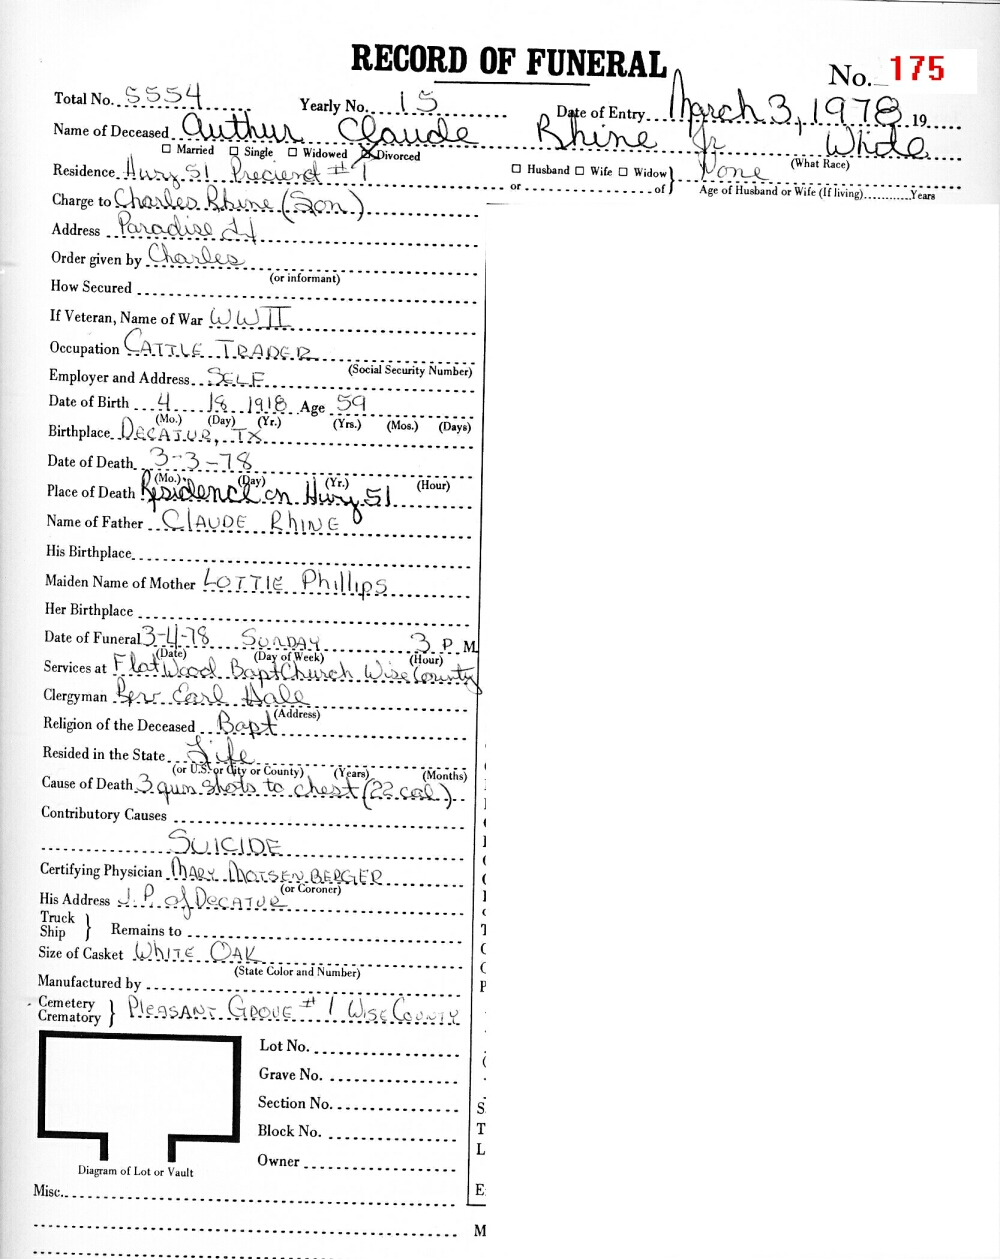 RECORD OF FUNERAL
No. 175
Total No. 5554 Yearly No. 15 Date of Entry March 3, 1978 19
Name of Deceased Authur Claude Rhine Jr White
☐ Married ☐ Single ☐ Widowed ☒ Divorced (What Race)
Residence Hwy 51 Precienct #1 ☐ Husband ☐ Wife ☐ Widow } None
or of Age of Husband or Wife (If living) Years
Charge to Charles Rhine (Son)
Address Paradise
Order given by Charles
(or informant)
How Secured
If Veteran, Name of War WW II
Occupation CATTLE TRADER
(Social Security Number)
Employer and Address SELF
Date of Birth 4 18 1918 Age 59
(Mo.) (Day) (Yr.) (Yrs.) (Mos.) (Days)
Birthplace DECATUR, TX
Date of Death 3-3-78
(Mo.) (Day) (Yr.) (Hour)
Place of Death Residence on Hwy 51
Name of Father CLAUDE RHINE
His Birthplace
Maiden Name of Mother LOTTIE Phillips
Her Birthplace
Date of Funeral 3-4-78 SUNDAY 3 P. M
(Date) (Day of Week) (Hour)
Services at Flat Wood Bapt Church Wise County
Clergyman Rev Earl Hale
(Address)
Religion of the Deceased Bapt
Resided in the State Life
(or U.S. or City or County) (Years) (Months)
Cause of Death 3 gun shots to chest (22 cal)
Contributory Causes
SUICIDE
Certifying Physician MARY MOTSENBERGER
(or Coroner)
His Address J.P. of DECATUR
Truck
Ship } Remains to
Size of Casket WHITE OAK
(State Color and Number)
Manufactured by
Cemetery
Crematory } PLEASANT GROVE #1 WISE COUNTY
Lot No.
Grave No.
Section No.
Block No.
Owner
Diagram of Lot or Vault
Misc.
S
T
L
E
M